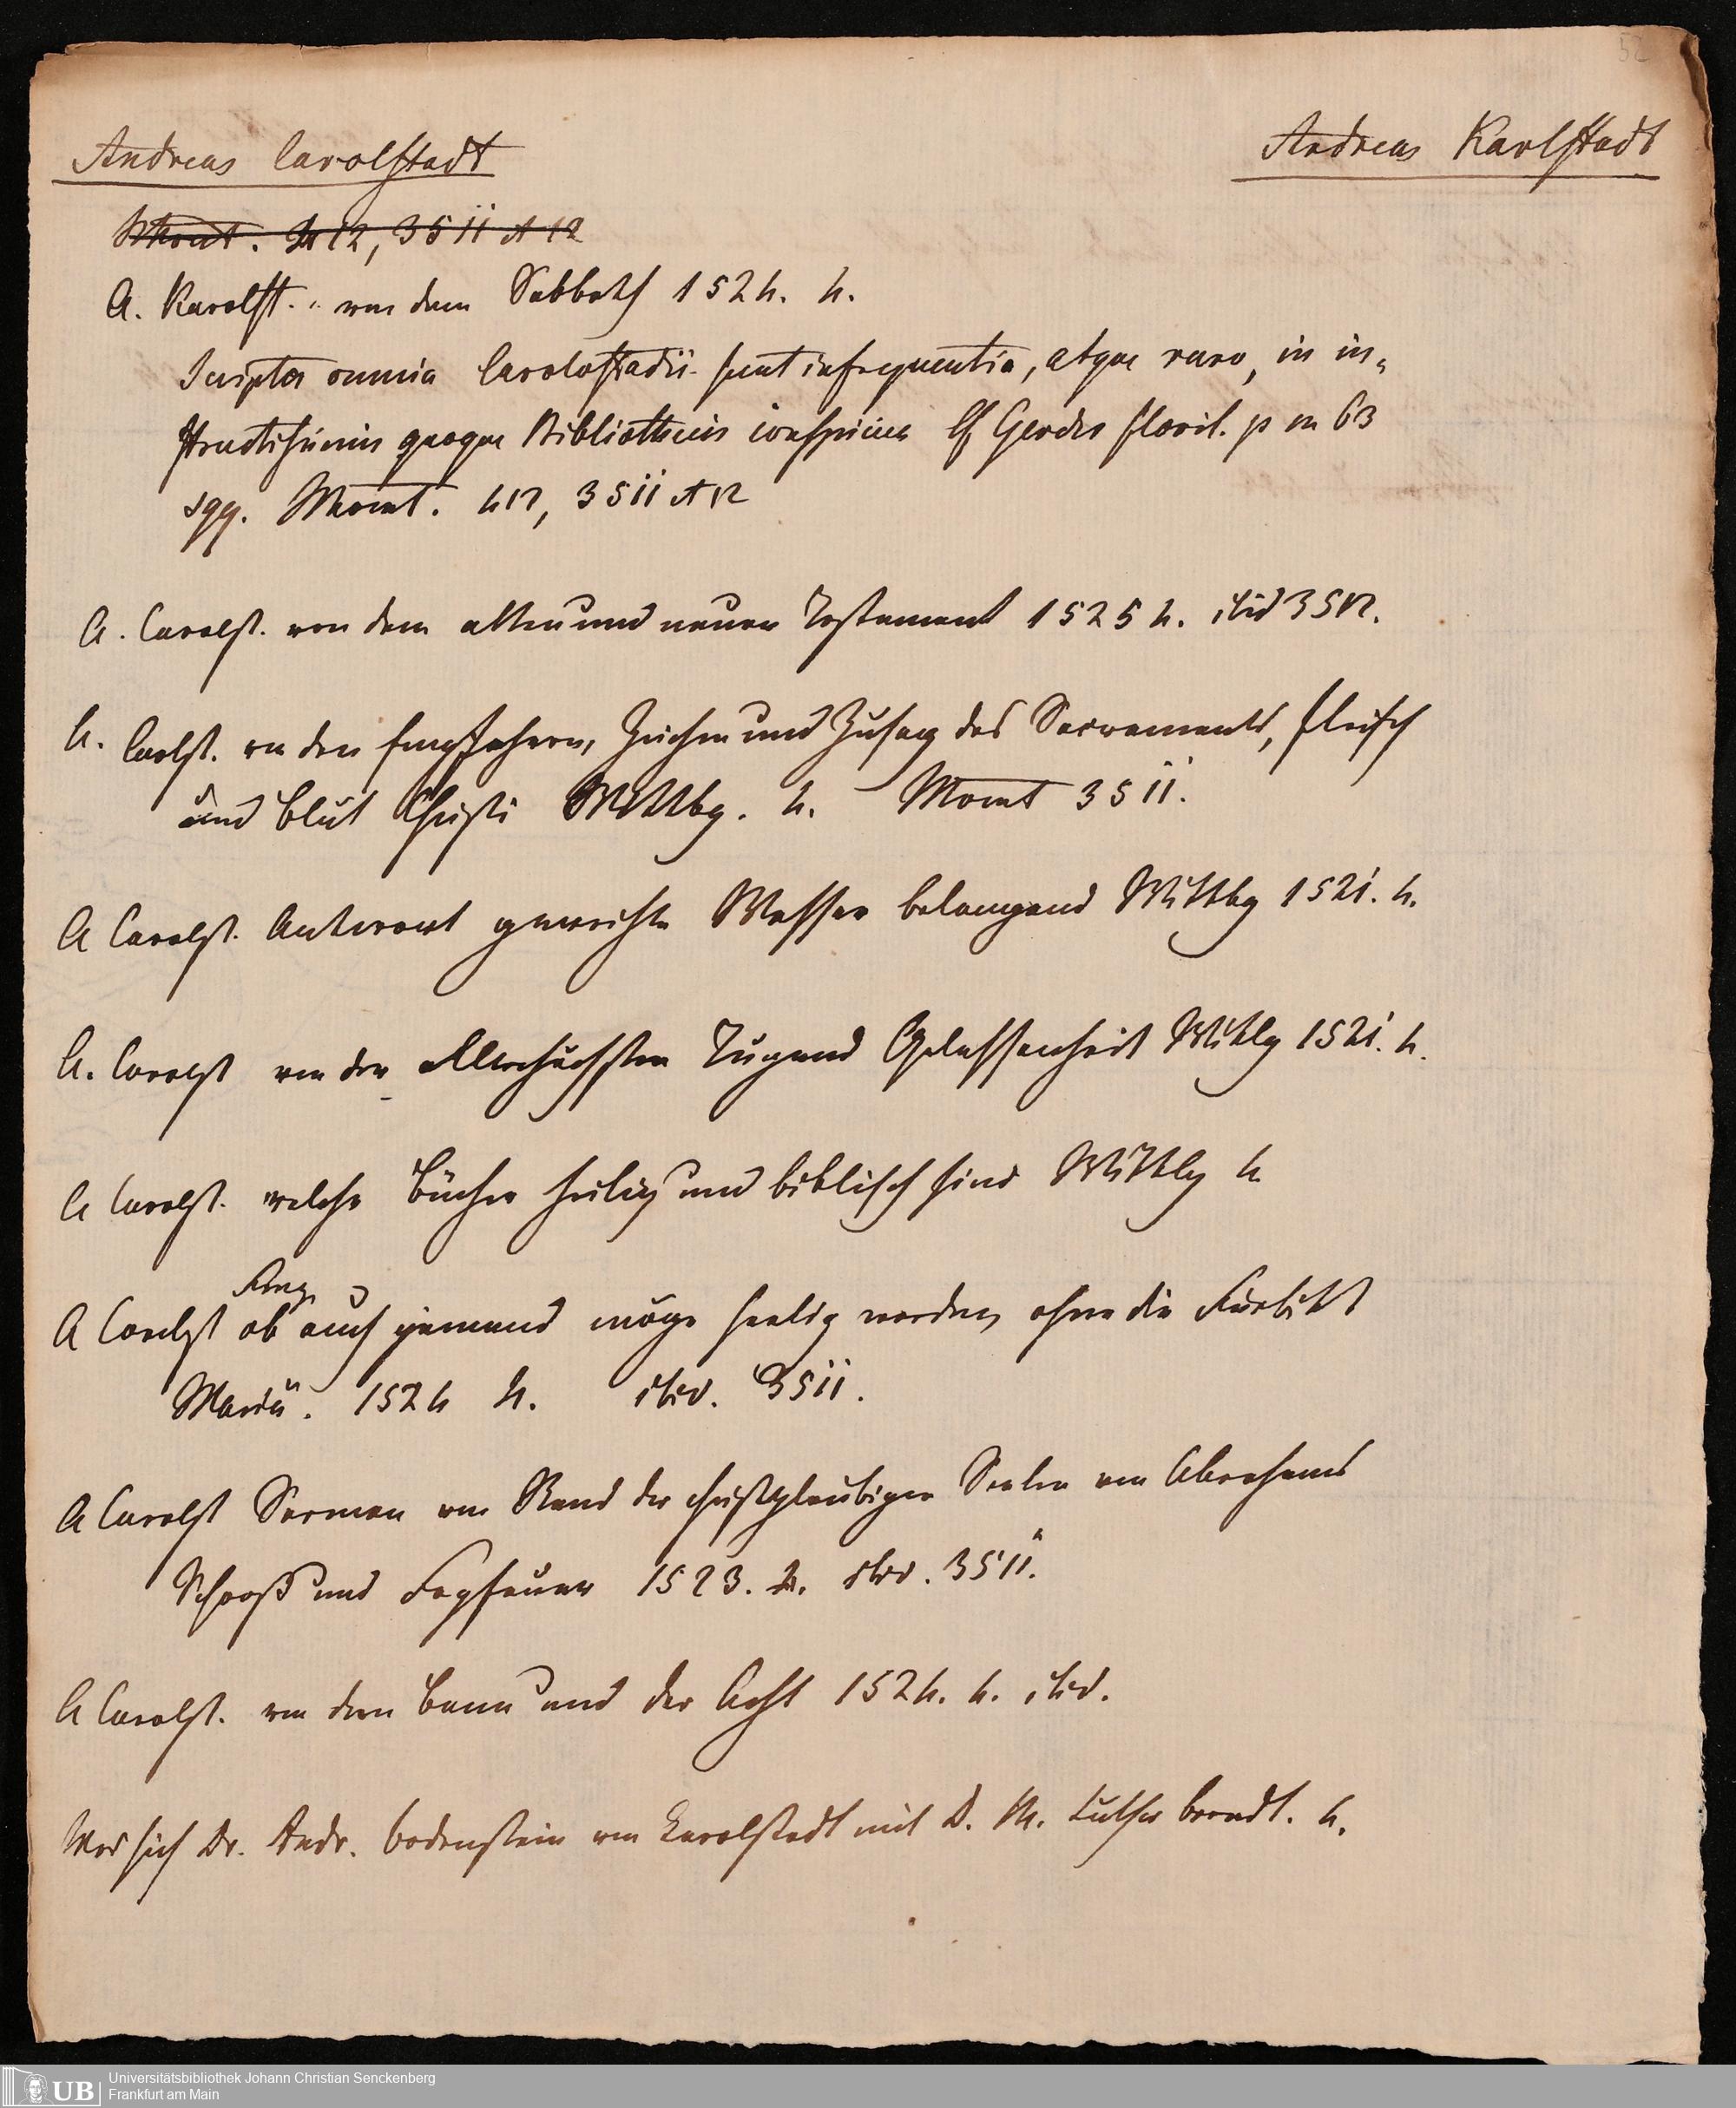 52
Andreas Carolstadt
Andreas Karlstadt
A. Karolst. von dem Sabbath 1524. 4.
Scripta omnia Carolostadii sunt infrequentia, atque raro, in in-
structissimis quoque Bibliothecis conspicua cf Gerdes floril. p m 63
sqq. 3511
A. Carolst. von dem alten und neuen Testament 1525 4. ibid 3512.
A. Carlst. von den Empfahern, Zeichen und Zusag des Sacraments, fleisch
und Blut Christi Wittbg. 4. 3511.
A Carolst. Antwort geweicht Wasser belangend Wittbg 1521. 4.
A. Carolst von der allerhöchsten Tugend Gelassenheit Wittbg 1521. 4.
A Carolst. welche Bücher heilig und biblisch sind Wittbg 4
A Carolst Frag ob auch jemand möge seelig werden ohne die Fürbitt
Mariä. 1524 4. ibid. 3511.
A Carolst Sermon vom Stand der christgläubigen Seelen von Abrahams
Schooß und Fegfeuer 1523. 4. ibid. 3511.
A Carolst. von dem Bann und der Acht 1524. 4. ibid.
Was sich Dr. Andr. Bodenstein von Karolstadt mit D. M. Luther beredt. 4.
UB
Universitätsbibliothek Johann Christian Senckenberg
Frankfurt am Main